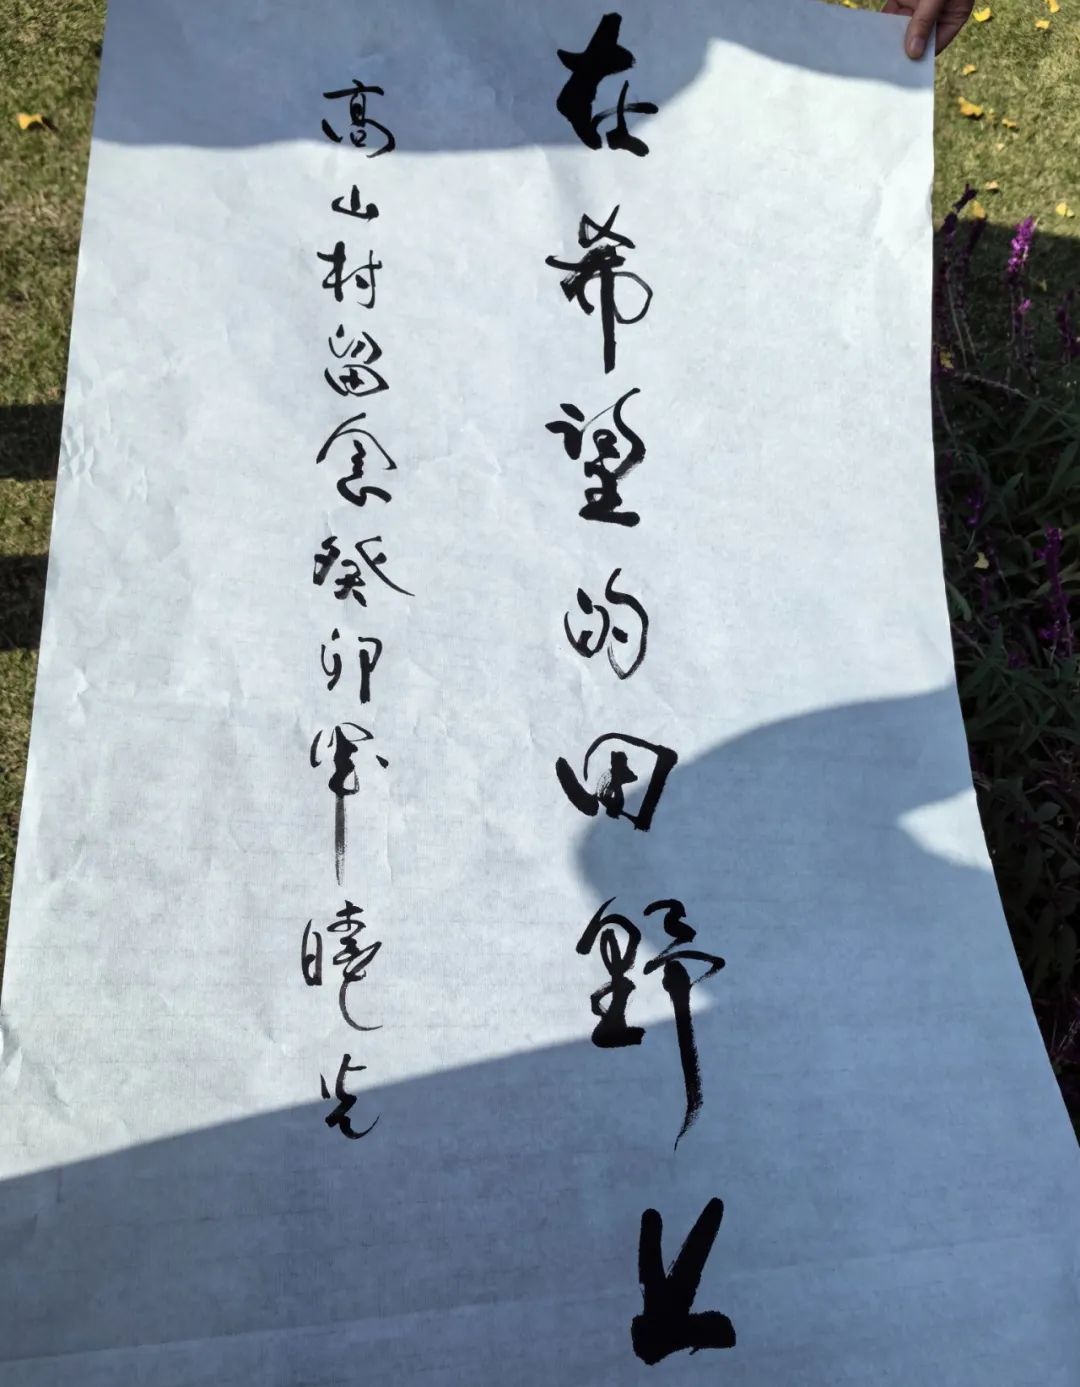 在希望的田野上
高山村留念癸卯翠晓光